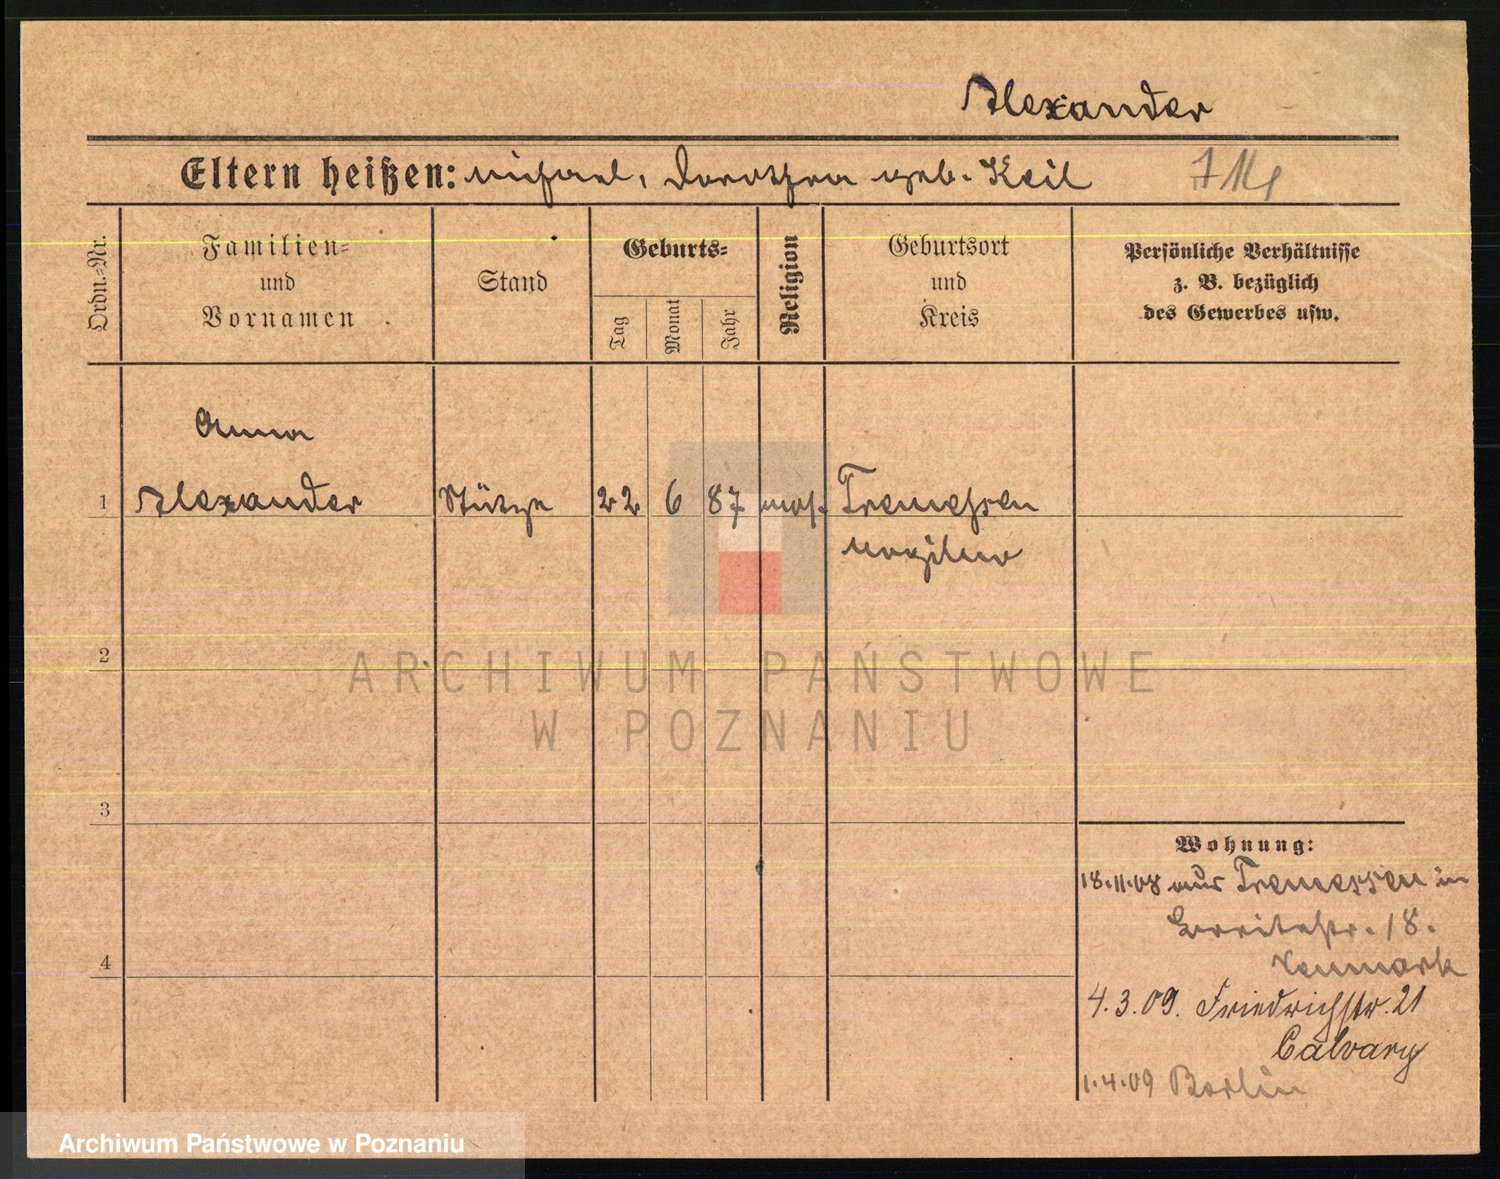 Alexander
Eltern heißen: Michael, Dorothea geb. Keil
Ordn.-Nr.
Familien- und Vornamen
Stand
Geburts-
Tag
Monat
Jahr
Religion
Geburtsort und Kreis
Persönliche Verhältnisse
z. B. bezüglich
des Gewerbes usw.
Anna
1 Alexander Stütze 22 6 87 mos. Tremessen
Mogilno
2
ARCHIWUM PAŃSTWOWE
W POZNANIU
3
Wohnung:
18.11.08 aus Tremessen in
Breitestr. 18.
4
4.3.09. Friedrichstr. 21
Calvary
1.4.09 Berlin
Archiwum Państwowe w Poznaniu